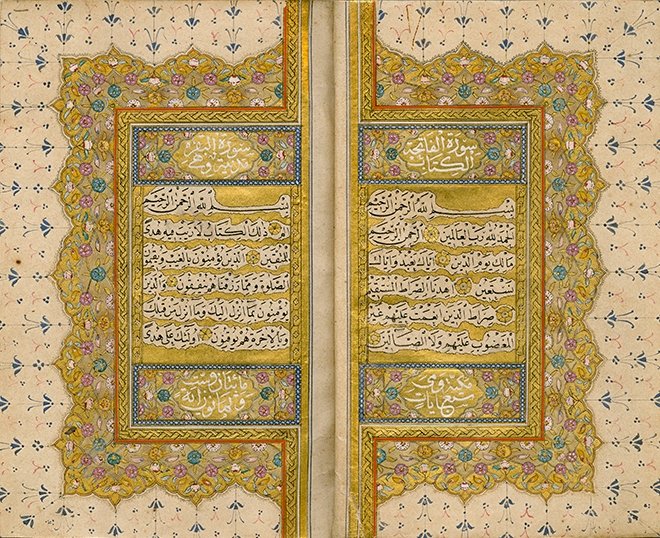 سورة الفاتحة
الكتاب
بسم الله الرحمن الرحيم
الحمد لله رب العالمين الرحمن الرحيم
مالك يوم الدين اياك نعبد واياك
نستعين اهدنا الصراط المستقيم
صراط الذين انعمت عليهم غير
المغضوب عليهم ولا الضالين
مكية وهي
سبع ايات
سورة البقرة
مدنية وهي
بسم الله الرحمن الرحيم
الم ذلك الكتاب لا ريب فيه هدى
للمتقين الذين يؤمنون بالغيب ويقيمون
الصلوة ومما رزقناهم ينفقون والذين
يؤمنون بما انزل اليك وما انزل من قبلك
وبالاخرة هم يوقنون اولئك على هدى
مائتان وست
وثمانون اية